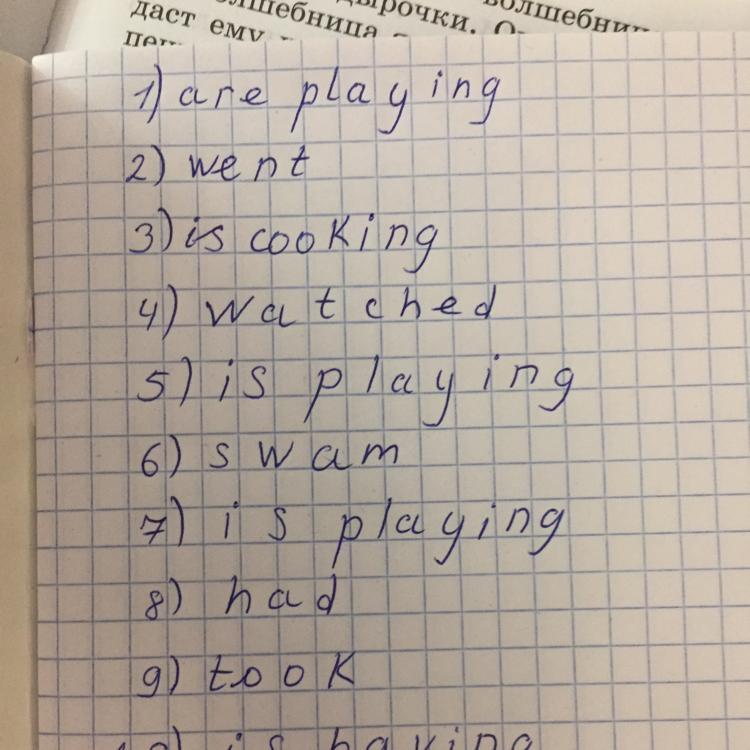 дырочки.
волшебниц
даст ему
1) are playing
2) went
3) is cooking
4) watched
5) is playing
6) swam
7) is playing
8) had
9) took
10) is having